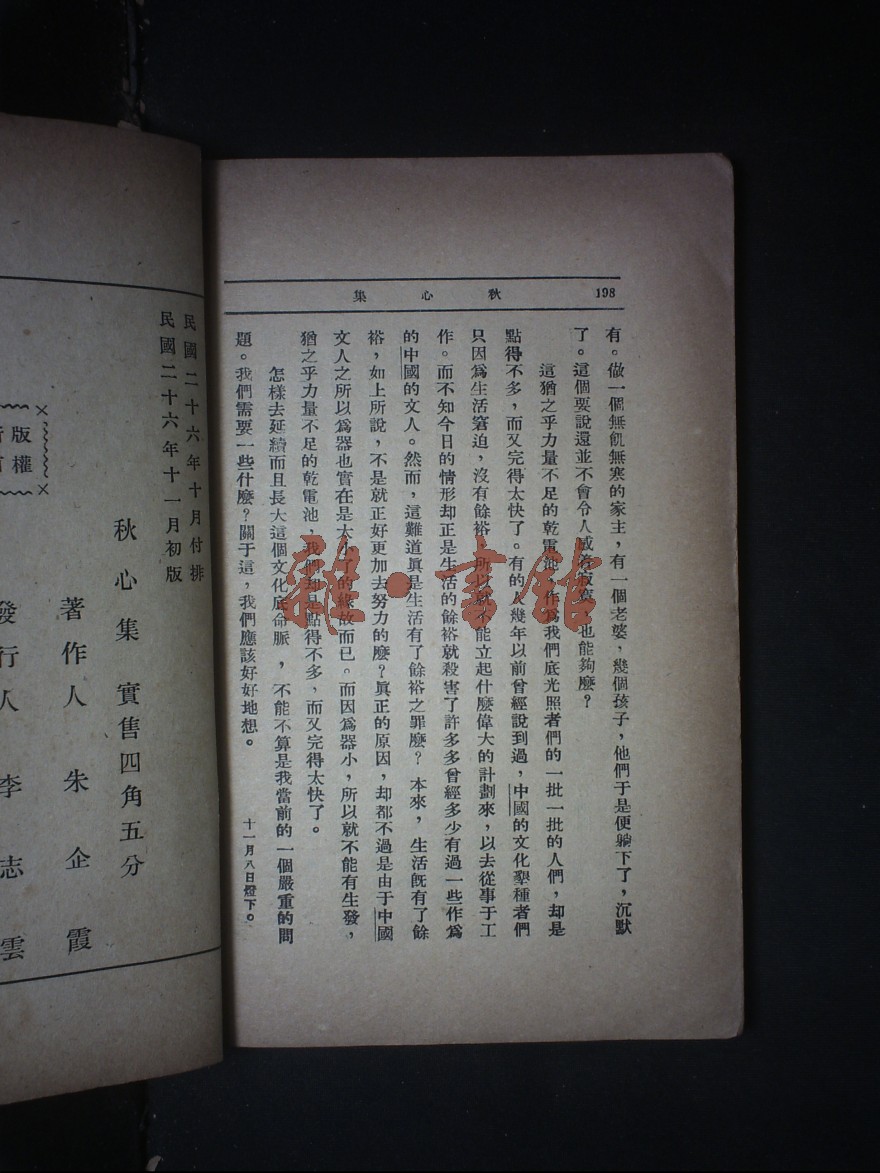 198
秋心集
有。做一個無飢無寒的家主，有一個老婆，幾個孩子，他們于是便躺下了，沉默
了。這個要說還並不會令人感落寂寞，也能夠麼？
這猶之乎力量不足的乾電池，作爲我們底光照者們的一批一批的人們，却是
點得不多，而又完得太快了。有的人幾年以前曾經說到過，中國的文化墾種者們
只因爲生活窘迫，沒有餘裕，所以就不能立起什麼偉大的計劃來，以去從事于工
作。而不知今日的情形却正是生活的餘裕就殺害了許多多曾經多少有過一些作爲
的中國的文人。然而，這難道眞是生活有了餘裕之罪麼？本來，生活旣有了餘
裕，如上所說，不是就正好更加去努力的麼？眞正的原因，却都不過是由于中國
文人之所以爲器也實在是太小了的緣故而已。而因爲器小，所以就不能有生發，
猶之乎力量不足的乾電池，我們却是點得不多，而又完得太快了。
怎樣去延續而且長大這個文化底命脈，不能不算是我當前的一個嚴重的問
題。我們需要一些什麼？關于這，我們應該好好地想。
十一月八日燈下。
民國二十六年十月付排
民國二十六年十一月初版
版權
秋心集 實售四角五分
著作人 朱企霞
發行人 李志雲
雜·書館